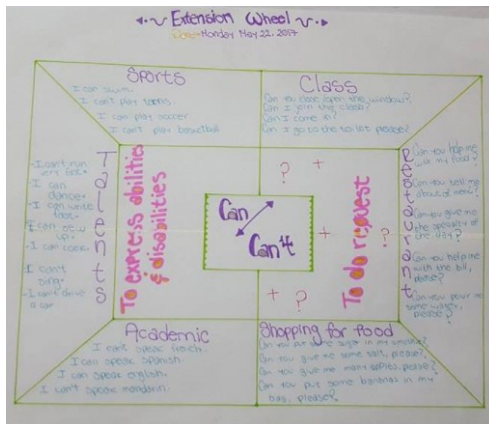 Extension Wheel
Date: Monday May 22, 2017
Sports
I can swim.
I can't play tennis.
I can play soccer
I can't play basketball
Class
Can you close/open the window?
Can I join the class?
Can I come in?
Can I go to the toilet please?
Talents
- I can't run
very fast.
I can
dance.
- I can write
I can sew
up.
- I can cook.
I can't
sing.
- I can't drive
a car.
To express abilities
& disabilities
Can
Can't
?
+
+
?
+
?
To do request
Restaurant
Can you help me
with my food?
Can you tell me
about
Can you give me
the specialty of
the day?
Can you help me
with the bill,
please?
Can you pour me
some water,
please?
Academic
I can't speak french.
I can speak spanish.
I can speak english.
I can't speak mandarin.
Shopping for food
Can you put some sugar in my
Can you give me some salt, please?
Can you give me many apples, please?
Can you put some bananas in my
bag, please?